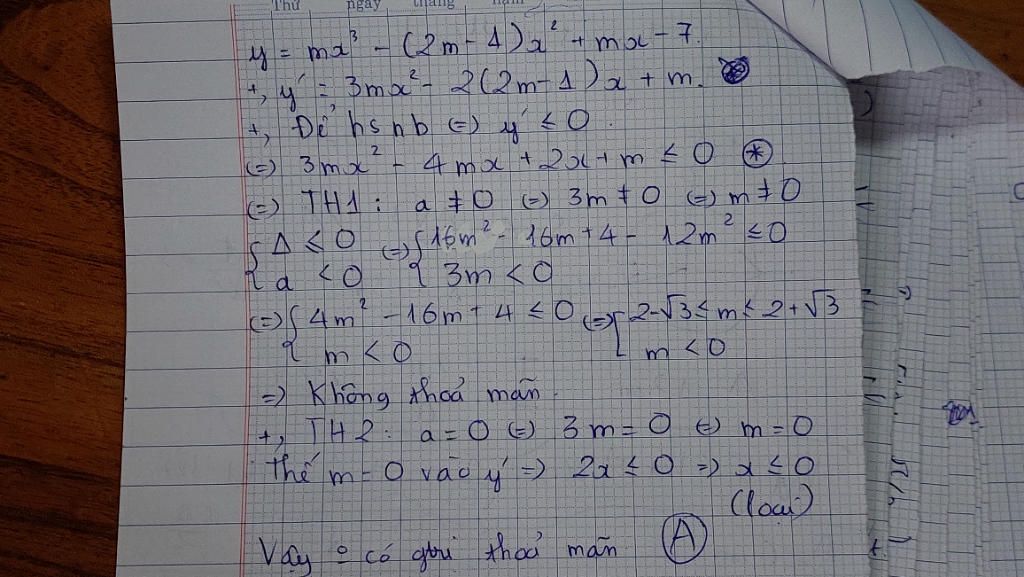 Thứ ngày tháng năm
y = mx³ - (2m - 1)x² + mx - 7.
+, y' = 3mx² - 2(2m-1)x + m.
+, Để hs nb (=) y' ≤ 0.
(=) 3mx² - 4mx + 2x + m ≤ 0 (*)
(=) TH1: a ≠ 0 (=) 3m ≠ 0 (=) m ≠ 0
{ Δ ≤ 0 (=) { 16m² - 16m + 4 - 12m² ≤ 0
{ a < 0 { 3m < 0
(=) { 4m² - 16m + 4 ≤ 0 (=) { 2-√3 ≤ m ≤ 2+√3
{ m < 0 { m < 0
=) Không thoả mãn.
+, TH2: a = 0 (=) 3m = 0 (=) m = 0
Thế m = 0 vào y' =) 2x ≤ 0 =) x ≤ 0
(loại)
Vậy o có gtri thoả mãn (A)